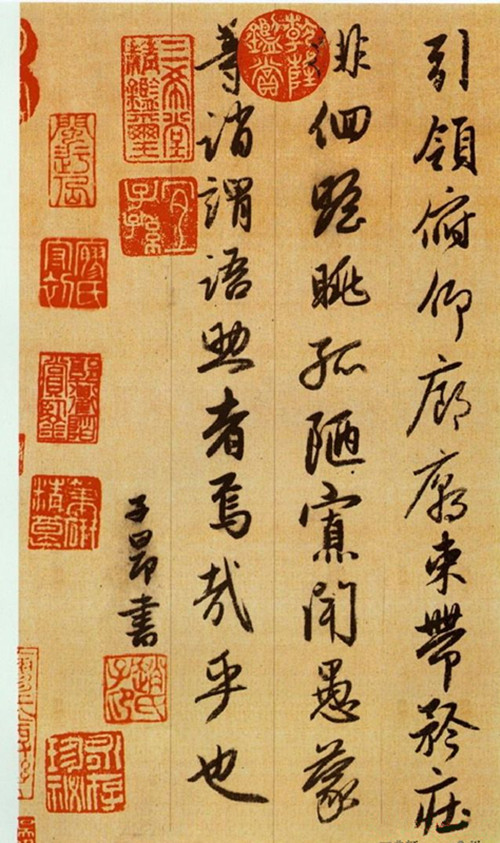 引領俯仰廊廟束帶矜庄
徘徊瞻眺孤陋寡聞愚蒙
等誚謂語助者焉哉乎也
子昂書
乾隆鑑賞
三希堂精鑑璽
宜子孫
趙氏子昂